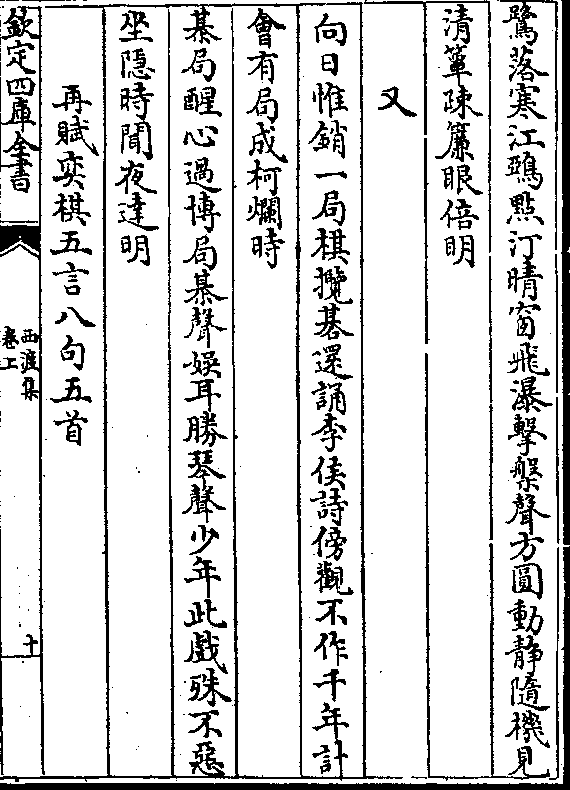 鷺落寒江鵶點汀晴窗飛瀑擊槃聲方圓動靜隨機見
清簟疎簾眼倍明
又
向日惟銷一局棋攬碁還誦李侯詩傍觀不作千年計
會有局成柯爛時
棊局醒心過博局棊聲娛耳勝琴聲少年此戲殊不惡
坐隠時聞夜達明
再賦奕棋五言八句五首
欽定四庫全書
西渡集
卷上
十